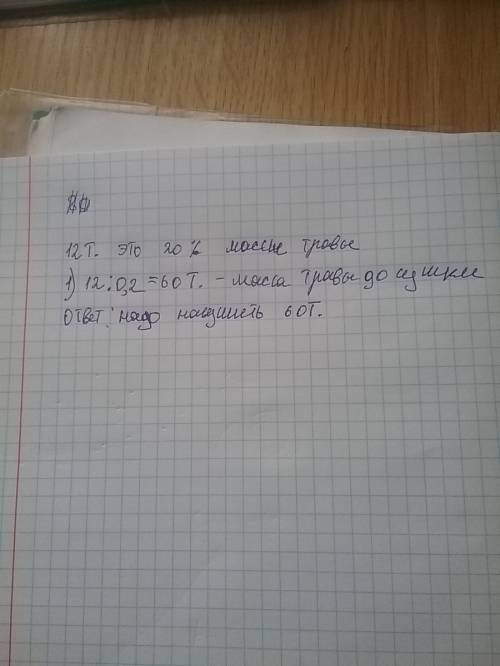 12т. это 20% массы травы
1) 12:0,2=60т. - масса травы до сушки
Ответ: надо насушить 60т.